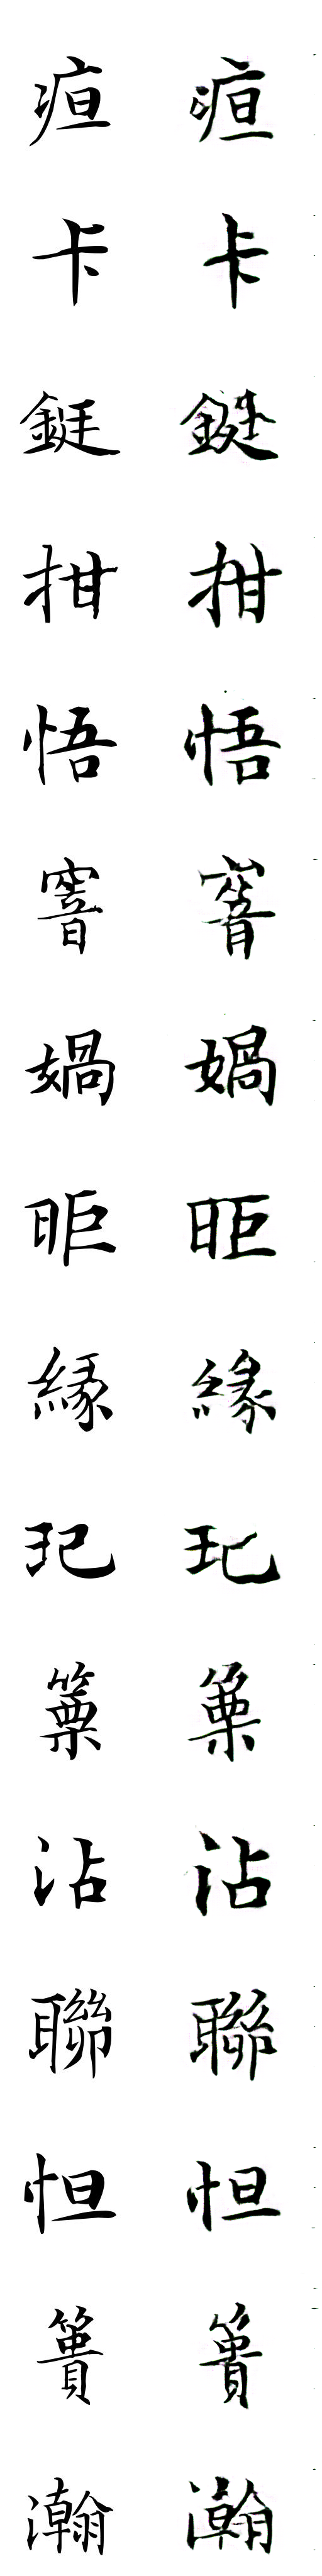 疸 疸
卡 卡
鋌 鋌
拑 拑
悟 悟
窨 窨
媧 媧
昛 昛
緣 緣
玘 玘
篥 篥
沾 沾
聯 聯
怛 怛
簣 簣
瀚 瀚